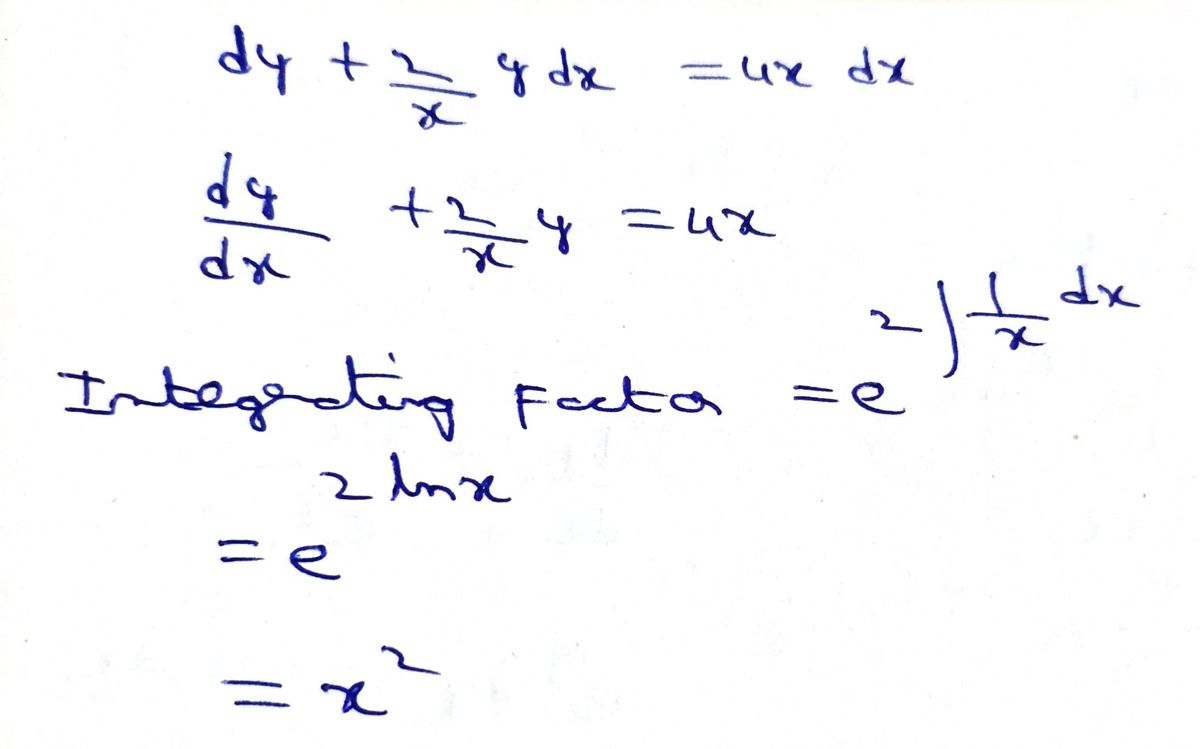 dy + 2/x y dx = 4x dx
dy/dx + 2/x y = 4x
Integrating Factor = e^(2∫1/x dx)
= e^(2 ln x)
= x²